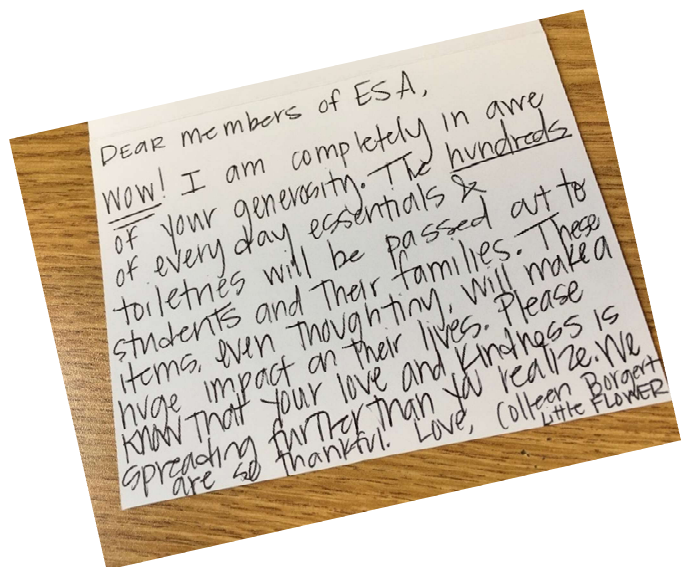 DEAR members of ESA,
WOW! I am completely in awe
of your generosity. The hundreds
of every day essentials &
toiletries will be passed out to
students and their families. These
items, even though tiny, will make a
huge impact on their lives. Please
know that your love and kindness is
spreading further than you realize. We
are so thankful. Love, Colleen Borgert
Little FLOWER